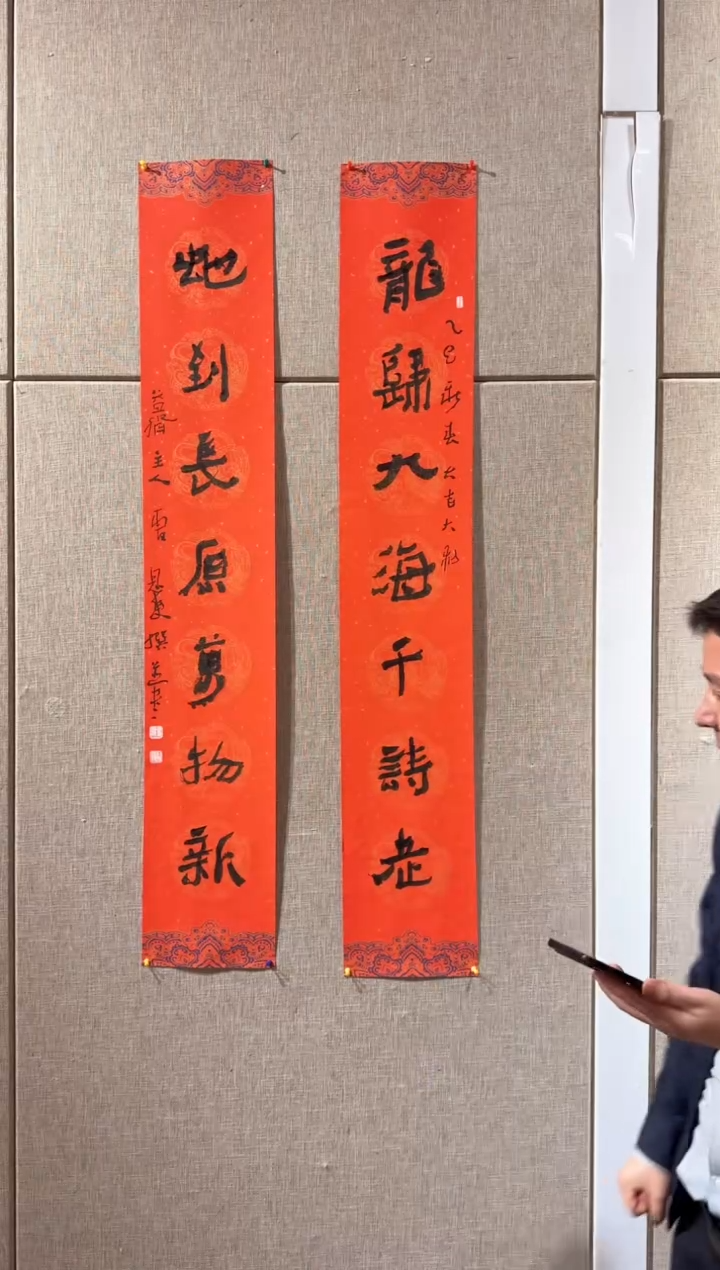 龍歸大海千詩老
乙巳新春大吉大利
虵到長原萬物新
主人 撰並書